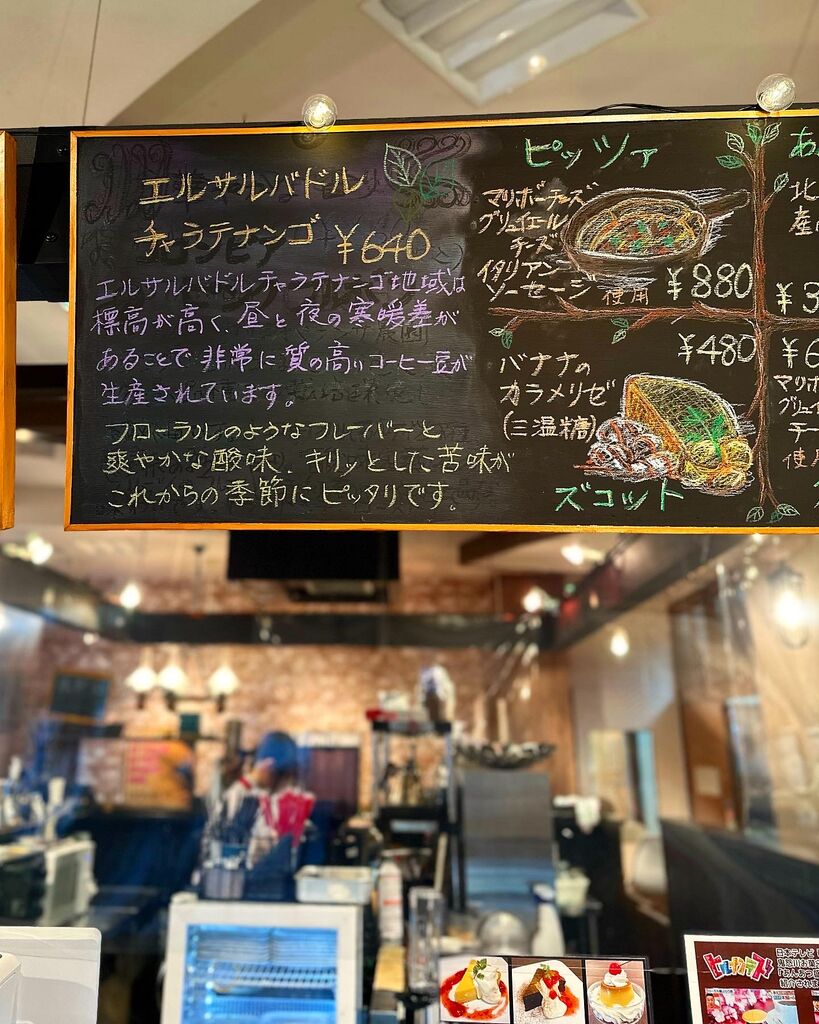 エルサルバドル
チャラテナンゴ ¥640
エルサルバドルチャラテナンゴ地域は
標高が高く、昼と夜の寒暖差が
あることで非常に質の高いコーヒー豆が
生産されています。
フローラルのようなフレーバーと
爽やかな酸味、キリッとした苦味が
これからの季節にピッタリです。
ピッツァ
マリボーチーズ
グリュイエール
チーズ
イタリアン
ソーセージ 使用 ¥880
¥480
バナナの
カラメリゼ
(三温糖)
ズコット
あ
北
産
¥3
¥6
マリボ
グリュイ
チー
使
ヒルナンデス!
日本テレビ